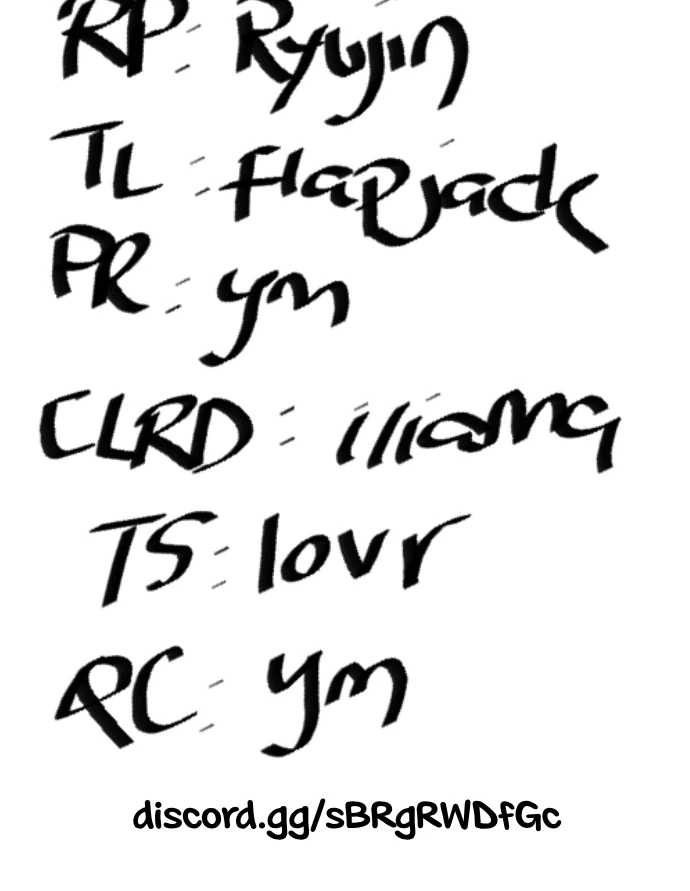 RP: Ryujin
TL: Flapjack
PR: ym
CLRD: iliamq
TS: lovr
QC: ym
discord.gg/sBRgRWDfGc